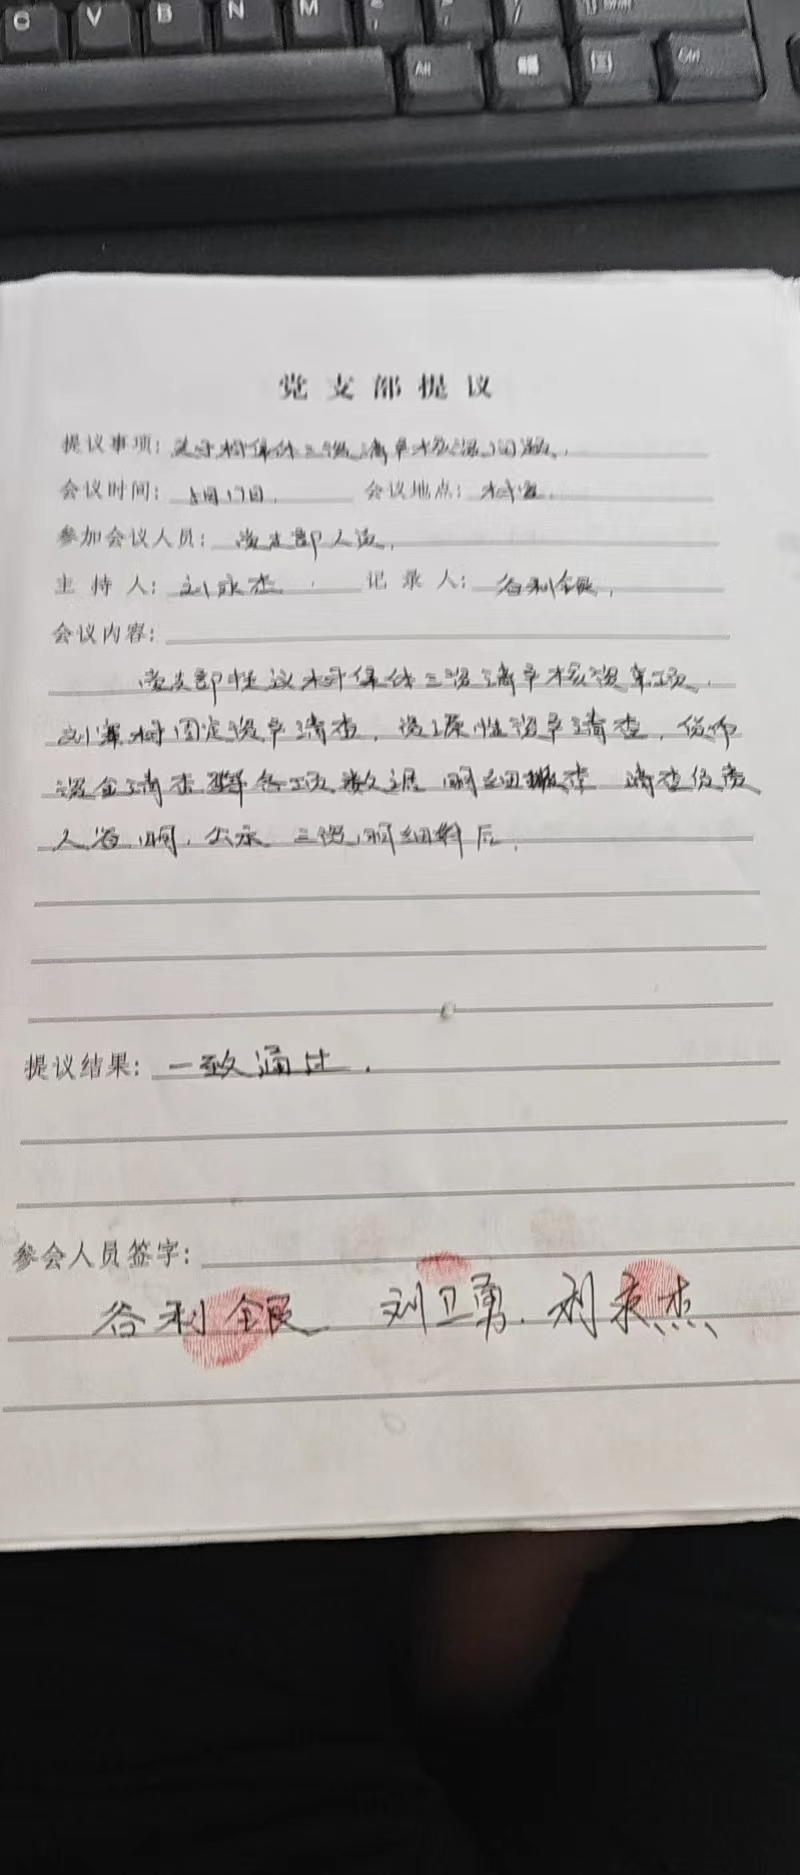 C V B N M
Alt Ctrl
党支部提议
提议事项: 关于村集体三资清产核资问题.
会议时间: 5月17日. 会议地点: 村室.
参加会议人员: 党支部人员.
主持人: 刘永杰 记录人: 谷利银.
会议内容:
党支部提议村集体三资清产核资事项.
刘寨村固定资产清查, 资源性资产清查, 货币
资金清查 各项数据 明细 清查负责
人 明, 公示 三资明细 后.
提议结果: 一致通过.
参会人员签字:
谷利银 刘卫勇. 刘永杰